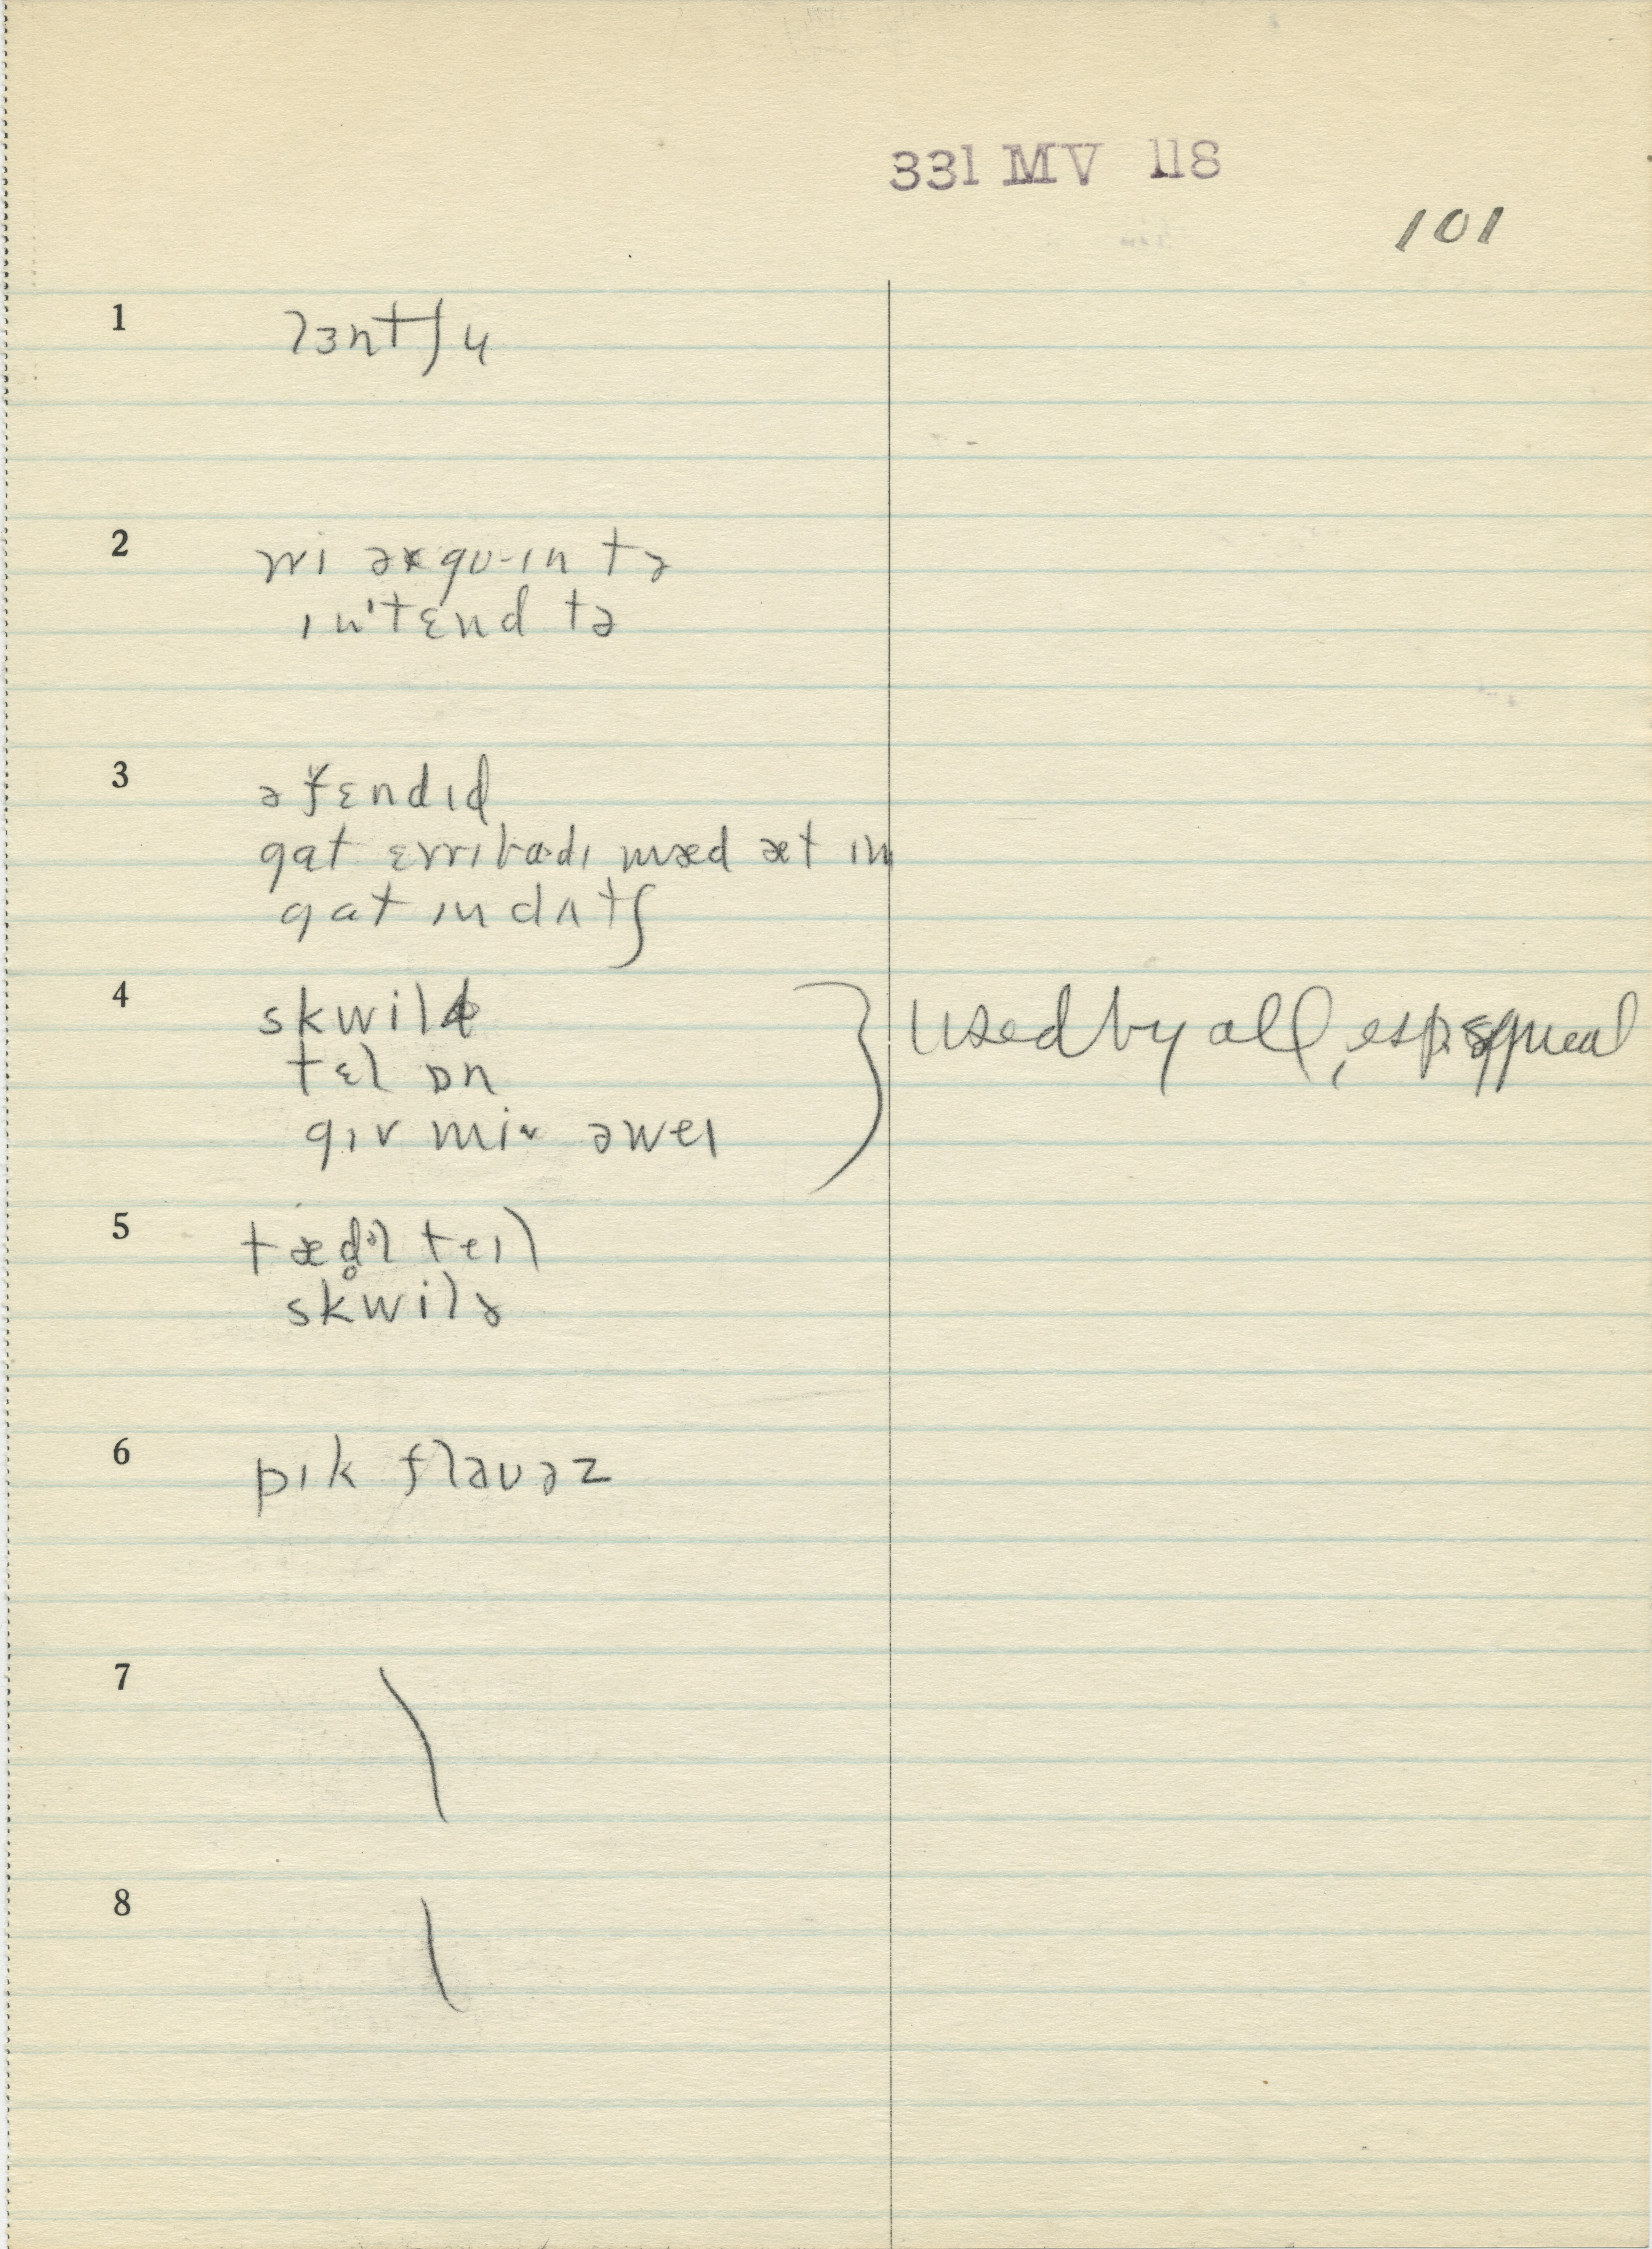 331 MV 118
101
1 lɜntʃ ɥ
2 wi əʀ goɪn tə
ɪn'tɛnd tə
3 əfɛndɪd
gat ɛvrɪbadɪ mæd æt ɪm
gat ɪn dʌtʃ
4 skwil
tɛl ɒn
gɪv mi əweɪ
Used by all, esp. squeal
5 tæd̥l teɪl
skwilɚ
6 pɪk flaʊəz
7
8